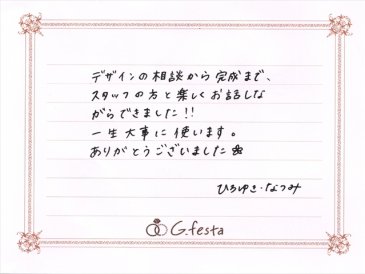 デザインの相談から完成まで、
スタッフの方と楽しくお話しな
がらできました!!
一生大事に使います。
ありがとうございました
ひろゆき・なつみ
G.festa